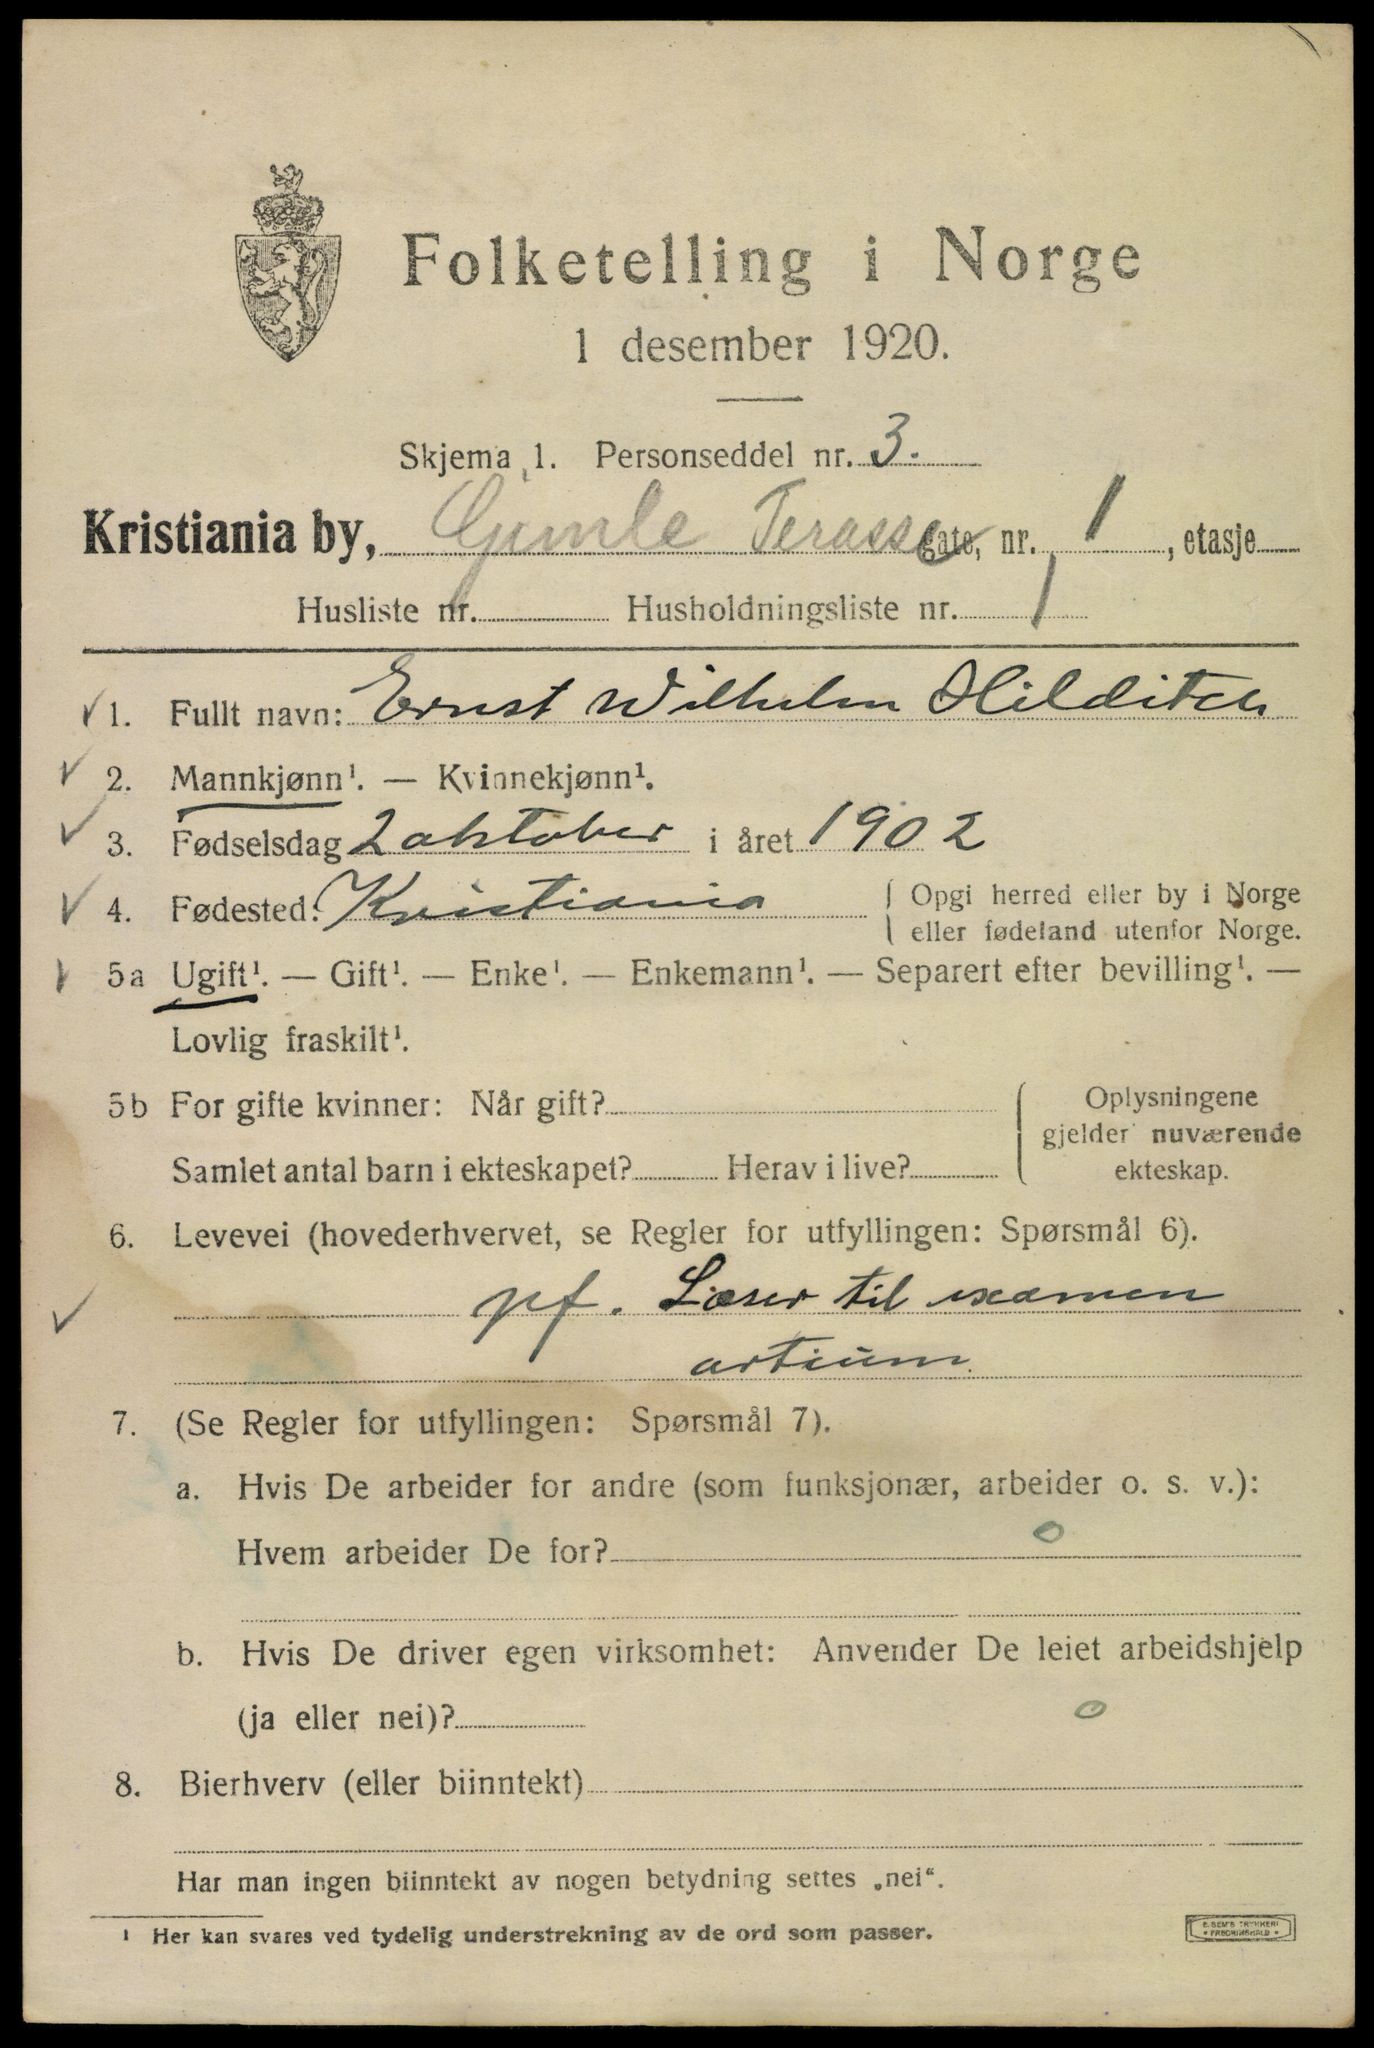 Folketelling i Norge
1 desember 1920.
Skjema 1. Personseddel nr. 3.
Kristiania by, Gimle Terasse gate, nr. 1, etasje
Husliste nr. Husholdningsliste nr. 1
1. Fullt navn: Ernst Wilhelm Hilditch
2. Mannkjønn¹. — Kvinnekjønn¹.
3. Fødselsdag 2 oktober i året 1902
4. Fødested: Kristiania { Opgi herred eller by i Norge
eller fødeland utenfor Norge.
5a Ugift¹. — Gift¹. — Enke¹. — Enkemann¹. — Separert efter bevilling¹. —
Lovlig fraskilt¹.
5b For gifte kvinner: Når gift?
Samlet antal barn i ekteskapet? Herav i live?
Oplysningene
gjelder nuværende
ekteskap.
6. Levevei (hovederhvervet, se Regler for utfyllingen: Spørsmål 6).
pf. Læser til examen
artium.
7. (Se Regler for utfyllingen: Spørsmål 7).
a. Hvis De arbeider for andre (som funksjonær, arbeider o. s. v.):
Hvem arbeider De for? o
b. Hvis De driver egen virksomhet: Anvender De leiet arbeidshjelp
(ja eller nei)? o
8. Bierhverv (eller biinntekt)
Har man ingen biinntekt av nogen betydning settes „nei“.
¹ Her kan svares ved tydelig understrekning av de ord som passer.
E. SEM'S TRYKKERI
FREDRIKSHALD